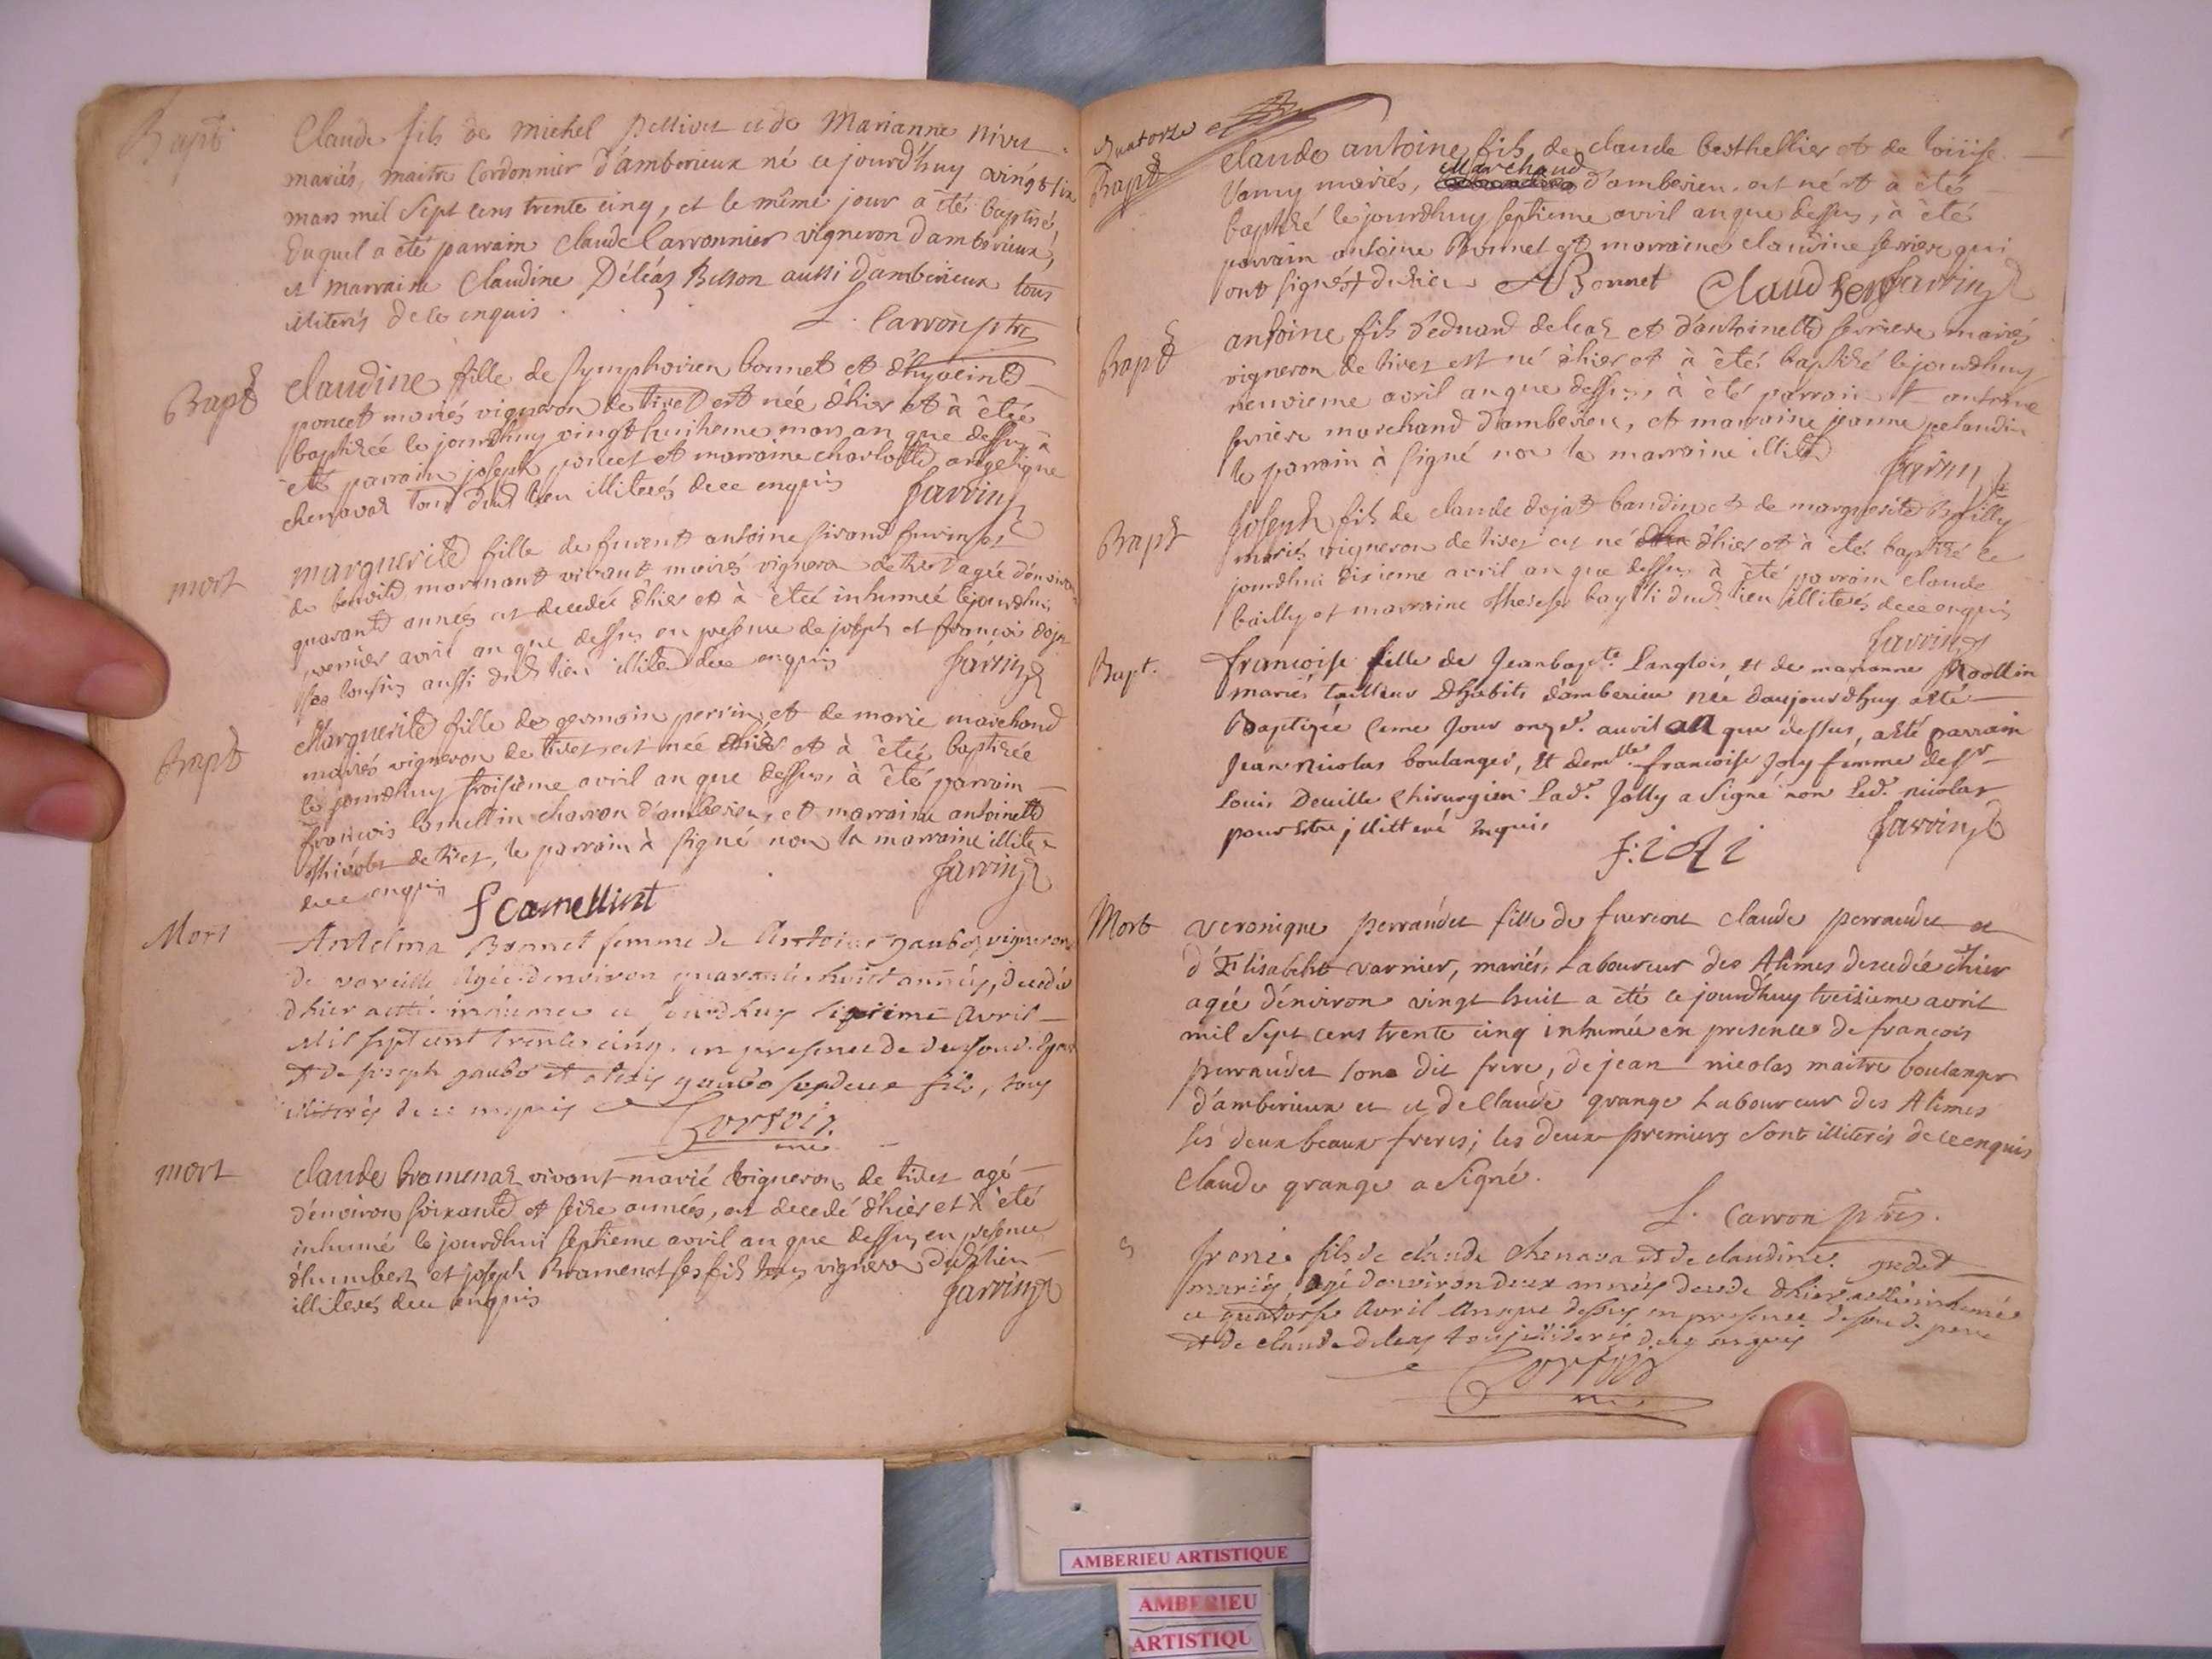 Bapt
Claude fils de Michel pettivet et de Marianne Nivet
mariés, maitre Cordonnier d'amberieux né ce jourd'huy vingt six
mars mil sept cens trente cinq, et le même jour a été baptisé,
duquel a été parrain Claude Carronnier vigneron d'amberieux,
et marraine Claudine Déléaz Buson aussi d'amberieux tous
illiterés de ce enquis
L. Carron ptre
Bapt
claudine fille de symphorien bonnet et d'hyacinte
poncet mariés vigneron de tiret est née d'hier et à êtée
baptizée le jourdhuy vingt huitieme mars an que dessus à
été parrain joseph poncet et marraine charlotte angelique
chenavaz tous dud. lieu illiterés dece enquis
Jarrin
mort
marguerite fille de furent antoine sirand furin et
de benoite mormant vivant mariés vigneron de tiret agée d'environ
quarante années est decedée d'hier et à êtée inhumée lejourdhui
premier avril an que dessus en presence de joseph et francois dojat
ses cousins aussi dud. lieu illite. dece enquis
Jarrin
Bapt
Marguerite fille de germain perrin et de marie marchand
mariés vigneron de tiret est née d'hier et à êtée baptizée
le jourdhuy troisieme avril an que dessus, à été parrain
francois comellin charron d'amberieu, et marraine antoinette
thievolet de tiret, le parrain à signé non la marraine illite
dece enquis
f comellint
Jarrin
Mort
Antelma Bonnet femme de Antoine gaubo vigneron
de vareille agée denviron quarante huit années, decedée
dhier a etté inhumée ce jourdhuy septieme avril
Mil sept cent trente cinq. en presence de
et de joseph gaubo et alexis gaubo ses deux fils, tous
illiterés de ce enquis
mort
claude bramenaz vivant marié vigneron de tiret agé
d'environ soixante et seize années, est decedé d'hier et à été
inhumé le jourdhui septieme avril an que dessus en presence
d'humbert et joseph Bramenat ses fils tous vigneron dud. lieu
illiterés dece enquis
Jarrin
quatorze
Bapt
claude antoine fils de claude besthellier et de loüise
Vamy mariés, Marchand d'amberieu, est né et à êtés
baptizé le jourdhuy septieme avril an que dessus, à été
parrain antoine Bonnet et marraine claudine serriere qui
ont signés
ABonnet
Jarrin
Bapt
antoine fils d'eduard deleaz et d'antoinette serriere mariés
vigneron de tiret est né d'hier et à été baptizé lejourdhuy
neuvieme avril an que dessus, à été parrain antoine
serriere marchand d'amberieu, et marraine jeanne pelaudin
le parrain à signé non la marraine illite
Jarrin
Bapt
joseph fils de claude dojat baudin et de marguerite Bailly
mariés vigneron de tiret est né d'hier et à été baptizé le
jourdhui dixieme avril an que dessus à été parrain claude
bailly et marraine therese bayli dud. lieu illiterés dece enquis
Jarrin
Bapt.
francoise fille de Jeanbapte. Langlois et de marianne Moollin
mariés tailleur d'habits d'amberieu née daujourdhuy a eté
Baptizée leme Jour onze. auvril an que dessus, a eté parrain
Jean nicolas boulanger, et demlle. francoise Joly femme de sr
Louis Deuille Chirurgien Lade. Jolly a signé non Led. nicolas
pour Estre jllitteré Enquis
f: joli
Jarrin
Mort
Veronique perraudet fille de furent claude perraudet et
d'Elisabeht varnier, mariés, Laboureur des Alimes decedée d'hier
agée d'environ vingt huit a été ce jourdhuy treizieme avril
mil sept cens trente cinq inhumée en presence de francois
perraudet son dit frere, de jean nicolas maitre boulanger
d'amberieux et et de Claude grange Laboureur des Alimes
ses deux beaux freres; les deux premiers sont illiterés de ce enquis
Claude grange a signé.
L. Carron ptre.
fils de claude chenava et de claudine
mariés, agé denviron deux années decedé dhier a etté inhumé
ce quatorze avril an que dessus en presence de son d. pere
et de claude deleaz tous illiterés de ce enquis
AMBERIEU ARTISTIQUE
AMBERIEU
ARTISTIQU